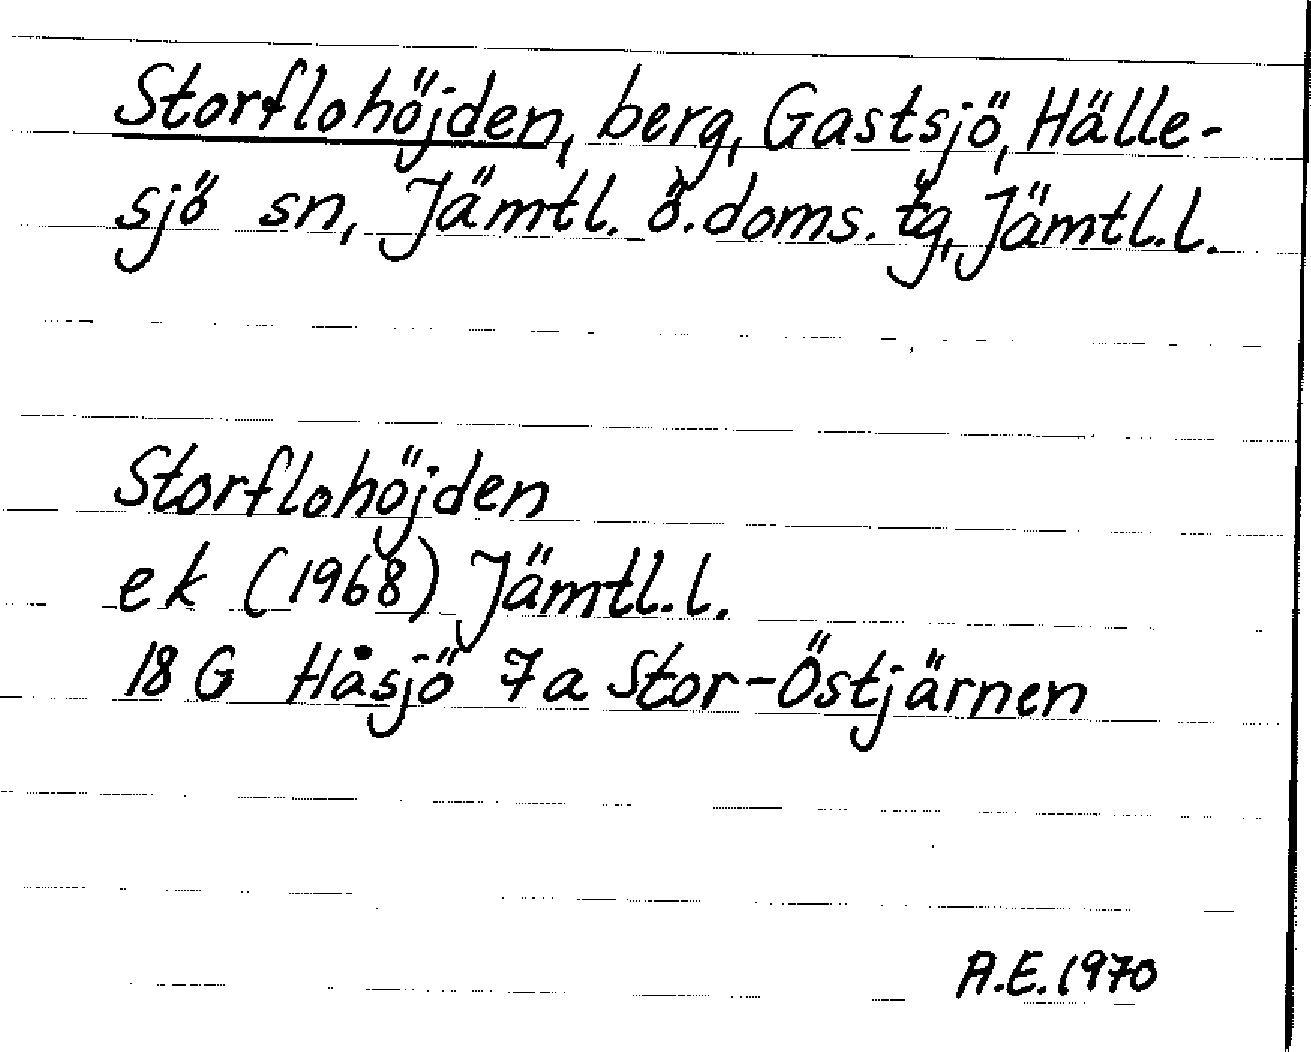 Storflohöjden, berg, Gastsjö, Hälle-
sjö sn, Jämtl. ö. doms. tg, Jämtl. l.
Storflohöjden
ek (1968) Jämtl. l.
18 G Håsjö 7a Stor-Östjärnen
A.E. 1970